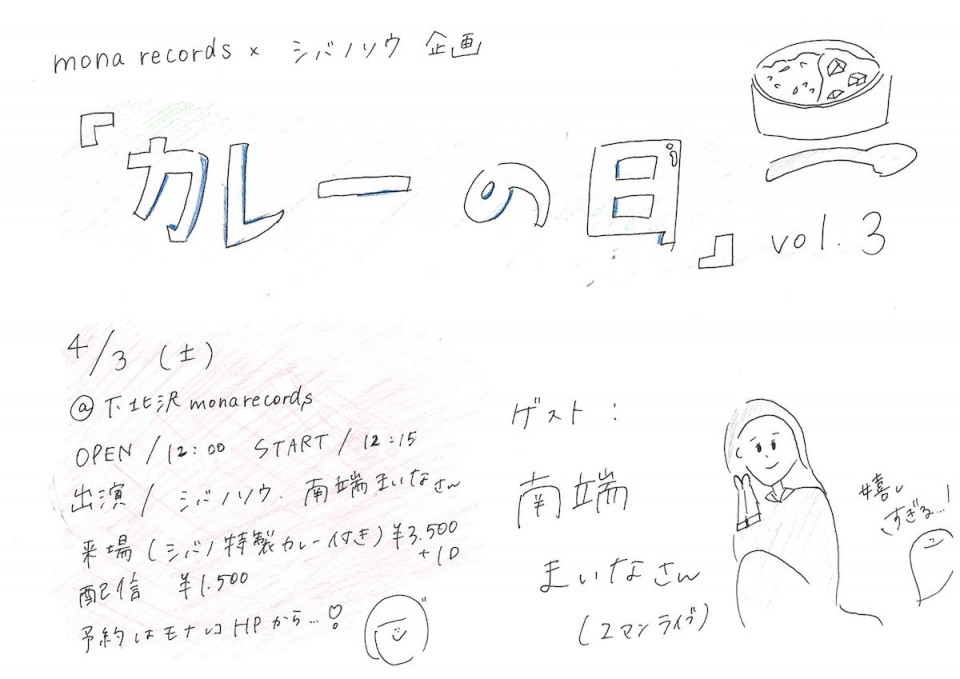 mona records × シバノソウ 企画
『カレーの日』 vol.3
4/3 (土)
@下北沢monarecords
OPEN / 12:00 START / 12:15
出演 / シバノソウ. 南端まいなさん
来場 (シバノ特製カレー付き) ¥3.500
+1D
配信 ¥1.500
予約はモナレコHPから…♡
ゲスト:
南端
まいなさん
(2マンライブ)
#嬉し
すぎる…!